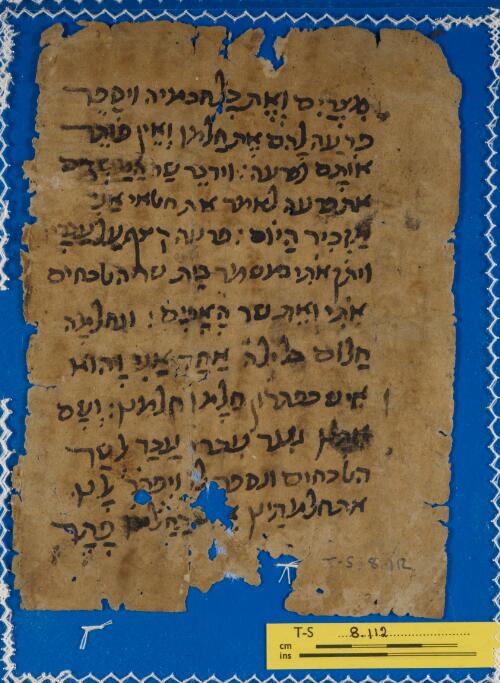 מִצְרַיִם וְאֶת כָּל חכמיה ויסַפֵּר
פרעה להם את חלמו וְאֵין פּוֹתֵר
אוֹתָם לפרעה: וידבר שר
את פרעה לאמר את חטאי אני
מַזכיר הַיּוֹם: פרעה קצף על עבדיו
ויתן אתי במשמר בית שר הטבחים
אֹתִי ואת שר הָאֹפִים: ונחלמה
חלום בלילה אחד אני והוא
איש כפתרון חלמו חלמנו: וְשָׁם
נער עברי עֶבֶד לשר
הטבחים ונספר לו ויפתר לָנוּ
את חלמתינו פָּתָר
T-S 8.112
T-S 8.112
cm
ins